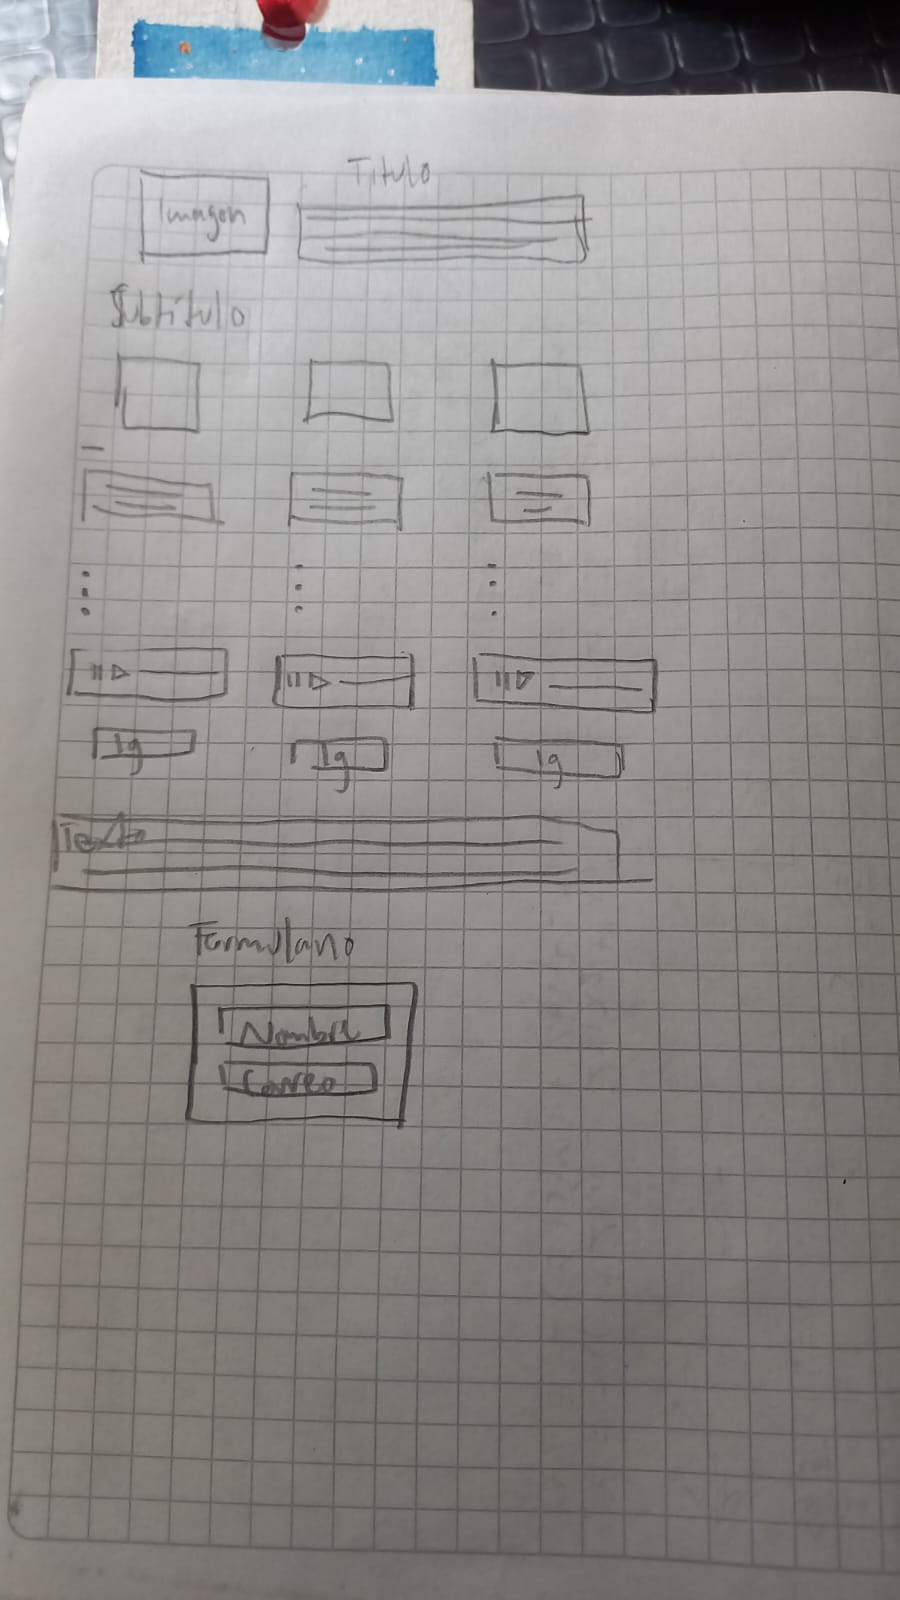 Titulo
Imagen
Subtitulo
Ig Ig Ig
Texto
Formulario
Nombre
Correo